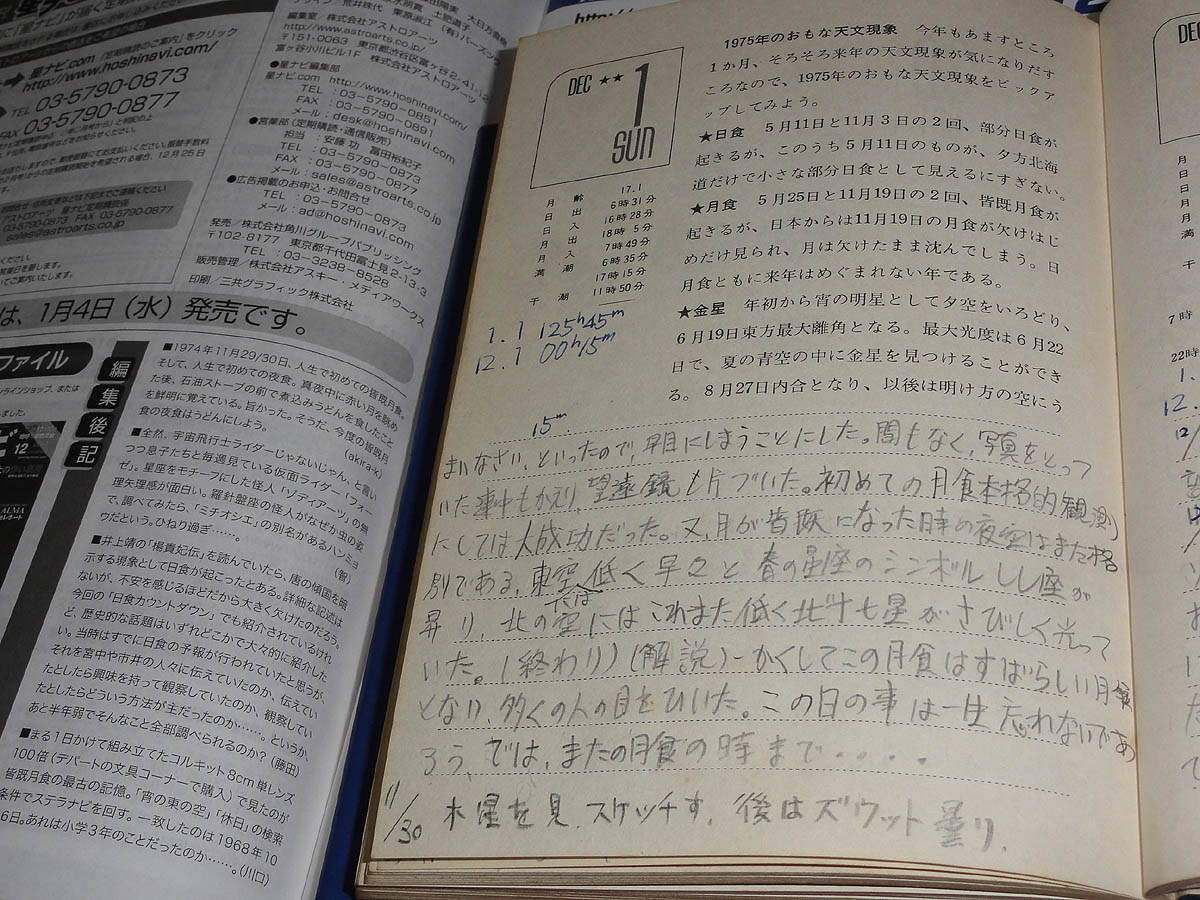 星ナビ.com「定期購読のご案内」をクリック
http://www.hoshinavi.com/
TEL 03-5790-0873
FAX 03-5790-0877
12月25日
星ナビ定期購読係
03-5790-0873 FAX 03-5790-0877
sales@astroarts.co.jp
編集室 株式会社アストロアーツ
http://www.astroarts.co.jp/
〒151-0063 東京都渋谷区富ヶ谷2-41-12
富ヶ谷小川ビル1F 株式会社アストロアーツ
●星ナビ編集部
星ナビ.com http://www.hoshinavi.com/
TEL :03-5790-0871
FAX :03-5790-0891
メール:desk@hoshinavi.com
●営業部(定期購読・通信販売)
担当 :安藤 功 冨田裕紀子
TEL :03-5790-0873
FAX :03-5790-0877
メール:sales@astroarts.co.jp
●広告掲載のお申込・お問合せ
TEL :03-5790-0873
メール:ad@hoshinavi.com
発売/株式会社角川グループパブリッシング
〒102-8177 東京都千代田区富士見2-13-3
TEL :03-3238-8528
販売管理/株式会社アスキー・メディアワークス
印刷/三共グラフィック株式会社
は、1月4日(水)発売です。
ファイル
編集後記
■1974年11月29/30日、人生で初めての皆既月食。
そして、人生で初めての夜食。真夜中に赤い月を眺め
た後、石油ストーブの前で煮込みうどんを食したこと
を鮮明に覚えている。旨かった。そうだ、今度の皆既月
食の夜食はうどんにしよう。 (akira-k)
■全然、宇宙飛行士ライダーじゃないじゃん、と言い
つつ息子たちと毎週見ている仮面ライダー「フォー
ゼ」。星座をモチーフにした怪人「ゾディアーツ」の無
理矢理感が面白い。羅針盤座の怪人がなぜか虫の姿
で、調べてみたら、「ミチオシエ」の別名があるハンミョ
ウだという。ひねり過ぎ……。 (智)
■井上靖の「楊貴妃伝」を読んでいたら、唐の傾国を暗
示する現象として日食が起こったとある。詳細な記述は
ないが、不安を感じるほどだから大きく欠けたのだろう。
今回の「日食カウントダウン」でも紹介されているけれ
ど、歴史的な話題はいずれどこかで大々的に紹介した
い。当時はすでに日食の予報が行われていたと思うが、
それを宮中や市井の人々に伝えていたのか、伝えてい
たとしたら興味を持って観察していたのか、観察してい
たとしたらどういう方法が主だったのか……。というか、
あと半年弱でそんなこと全部調べられるのか?(藤田)
■まる1日かけて組み立てたコルキット8cm単レンズ
100倍(デパートの文具コーナーで購入)で見たのが
皆既月食の最古の記憶。「宵の東の空」「休日」の検索
条件でステラナビを回す。一致したのは1968年10
6日。あれは小学3年のことだったのか……。(川口)
DEC ★★ 1
SUN
月齢 17.1
日出 6時31分
日入 16時28分
月出 18時5分
月入 7時49分
満潮 6時35分
17時15分
干潮 11時50分
1.1 125h45m
12.1 00h15m
1975年のおもな天文現象 今年もあますところ
1か月、そろそろ来年の天文現象が気になりだす
ころなので、1975年のおもな天文現象をピックア
ップしてみよう。
★日食 5月11日と11月3日の2回、部分日食が
起きるが、このうち5月11日のものが、夕方北海
道だけで小さな部分日食として見えるにすぎない。
★月食 5月25日と11月19日の2回、皆既月食が
起きるが、日本からは11月19日の月食が欠けはじ
めだけ見られ、月は欠けたまま沈んでしまう。日
月食ともに来年はめぐまれない年である。
★金星 年初から宵の明星として夕空をいろどり、
6月19日東方最大離角となる。最大光度は6月22
日で、夏の青空の中に金星を見つけることができ
る。8月27日内合となり、以後は明け方の空にう
15m
まいなさい、といったので、早目にしまうことにした。間もなく、写真をとって
いた事中もかえり、望遠鏡も片づいた。初めての月食本格的観測
にしては大成功だった。又、月が皆既になった時の夜空はまた格
別である。東空には低く早々と春の星座のシンボルしし座が
昇り、北の空にはこれまた低く北斗七星がさびしく光って
いた。(終わり)(解説)-かくしてこの月食はすばらしい月食
となり、多くの人の目をひいた。この日の事は一生忘れないであ
ろう、では、またの月食の時まで・・・・
11/30 木星を見、スケッチす、後はズウット曇り.
DEC
7時
22時
1.
12.